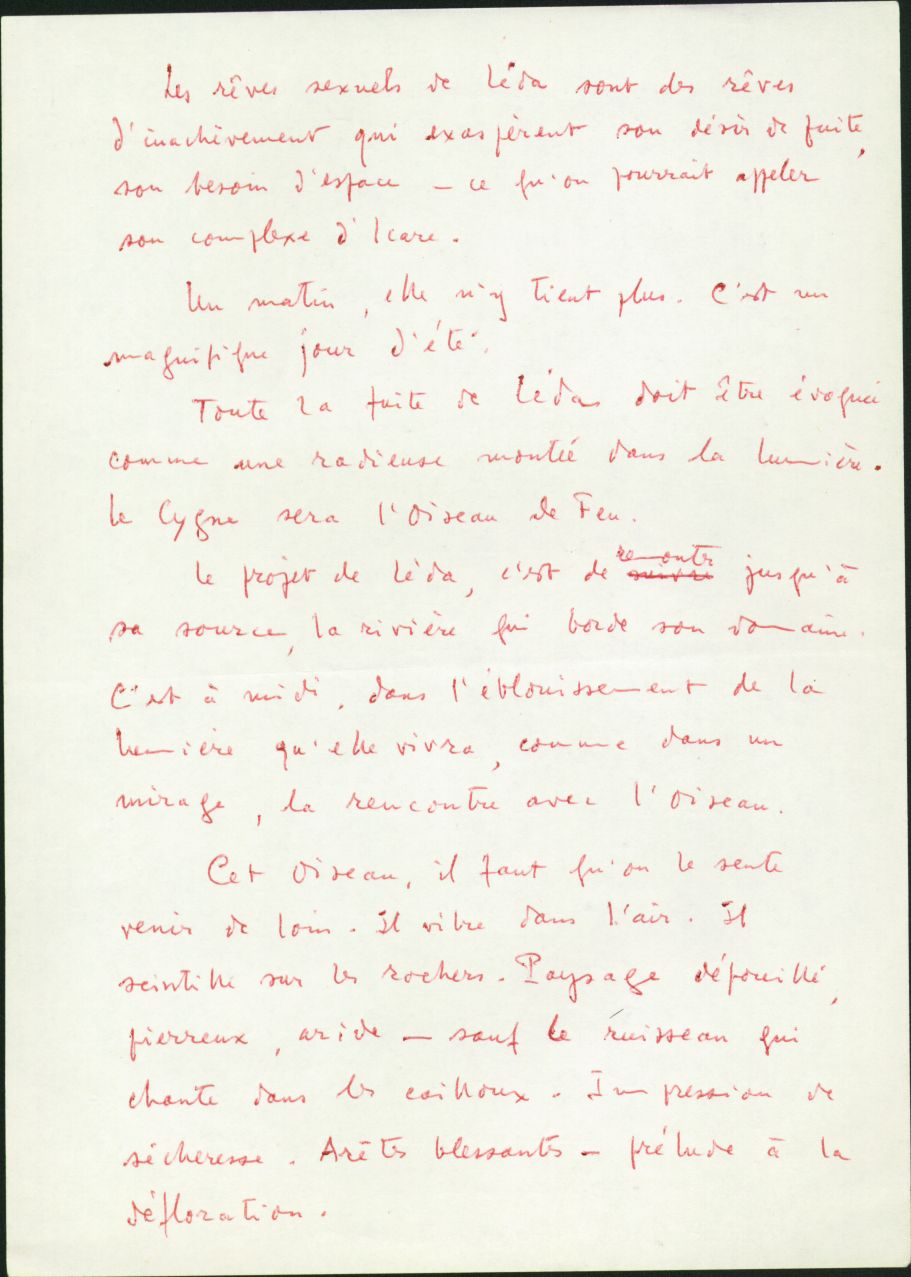 Les rêves sexuels de Léda sont des rêves
d'inachèvement qui exaspèrent son désir de fuite,
son besoin d'espace – ce qu'on pourrait appeler
son complexe d'Icare.
Un matin, elle n'y tient plus. C'est un
magnifique jour d'été.
Toute la fuite de Léda doit être évoquée
comme une radieuse montée dans la lumière.
Le Cygne sera l'Oiseau de Feu.
Le projet de Léda, c'est de ~~suivre~~ remonter jusqu'à
sa source, la rivière qui borde son domaine.
C'est à midi, dans l'éblouissement de la
lumière qu'elle vivra, comme dans un
mirage, la rencontre avec l'Oiseau.
Cet Oiseau, il faut qu'on le sente
venir de loin. Il vibre dans l'air. Il
scintille sur les rochers. Paysage dépouillé,
pierreux, aride – sauf le ruisseau qui
chante dans les cailloux. Impression de
sécheresse. Arêtes blessantes – prélude à la
défloration.